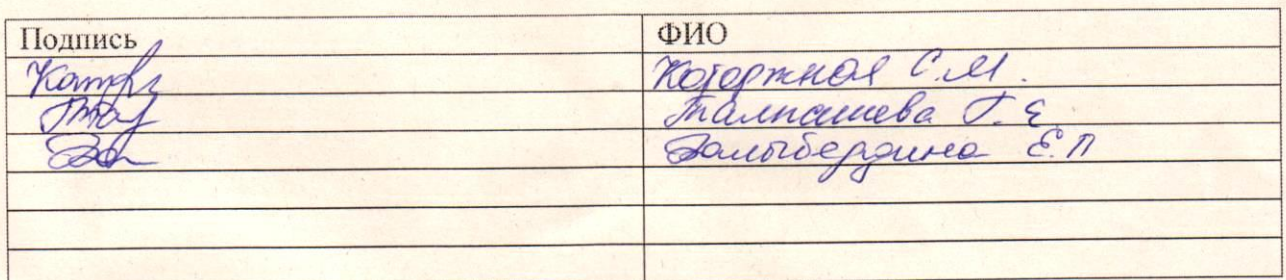 Подпись ФИО
Каторжная С.М.
Талпашева Г.Е
Залыбердина Е.П